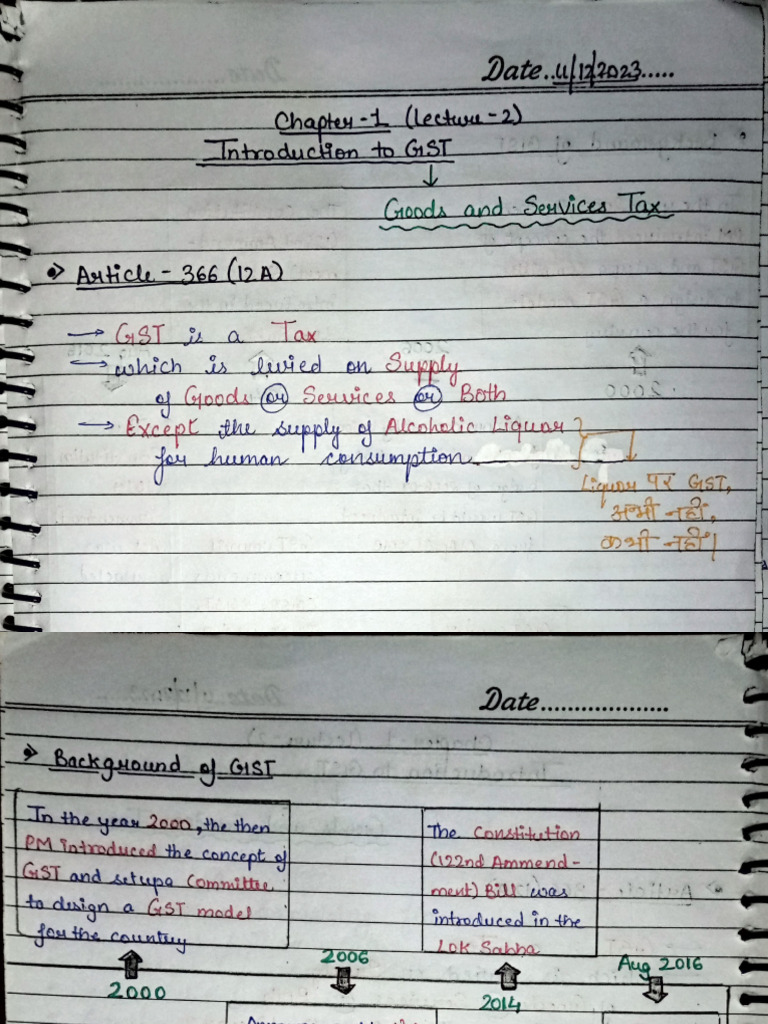 Date..11/12/2023.....
Chapter-1 (Lecture-2)
Introduction to GST
↓
Goods and Services Tax
Article - 366 (12A)
→ GST is a Tax
→ which is livied on Supply
of Goods or Services or Both
→ Except the supply of Alcoholic Liquor
for human consumption
Liquor पर GST,
अभी नहीं,
कभी नहीं।
Date...................
Background of GST
In the year 2000, the then
PM introduced the concept of
GST and setupa Committee
to design a GST model
for the country
The Constitution
(122nd Ammend-
ment) Bill was
introduced in the
Lok Sabha
2000
2006
2014
Aug 2016